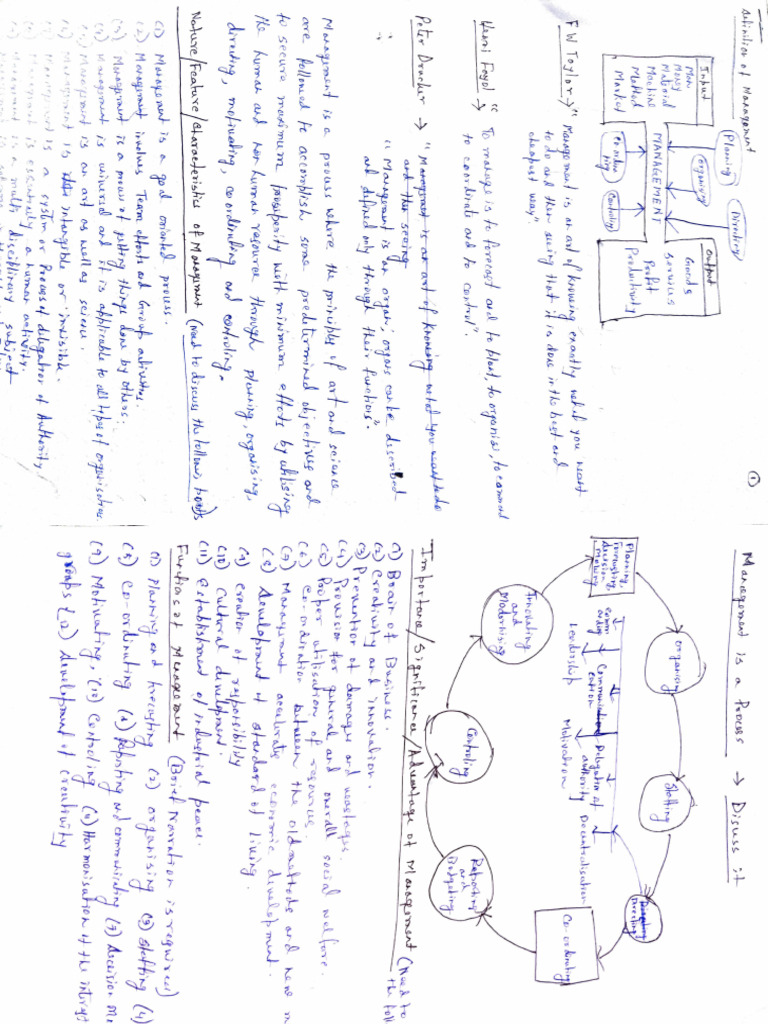 Definition of Management
①
Input
Man
Money
Material
Machine
Method
Market
Planning
Organising
Directing
MANAGEMENT
Controling
Output
Goods
Services
Profit
Productivity
F W Taylor → "Management is an art of knowing exactly what you want
to do and then seeing that it is done in the best and
cheapest way"
Henri Fayol → "To manage is to forecast and to plan, to organise, to command
to coordinate and to control".
Peter Drucker → "Management is an art of knowing what you want to do
and then seeing
"Management is an organ; organs can be described
and defined only through their functions."
Management is a process where the principles of art and science
are followed to accomplish some predetermined objectives and
to secure maximum prosperity with minimum efforts by utilising
the human and non human resource through planning, organising,
directing, motivating, co-ordinating and controling.
Nature/Feature/Characteristics of Management (need to discuss the following points)
(1) Management is a goal oriented process.
(2) Management involves Team efforts and Group activities.
(3) Management is a process of getting things done by others.
Management is universal and it is applicable to all types of organisations
Management is an art as well as science.
Management is intangible or invisible.
Management is a system or Process of delegation of Authority
Management is essentially a human activity.
Management is a multi disciplinary subject
Management is a Process → Discuss it
Planning,
forecasting,
decision
making
Organising
Staffing
Directing
Co-ordinating
Reporting
and
Budgeting
Controling
Innovating
and
Modernising
Leadership
Communication
Motivation
Delegation of
authority
Decentralisation
Importance/Significance/Advantage of Management (Need to
1) Brain of Business.
(2) Creativity and innovation.
(3) Prevention of damages and wastages.
(4) Provision for general and overall social welfare.
(5) Proper utilisation of resources.
(6) Co-ordination between the old methods and new
(7) Management accelerate economic development.
(8) Development of standard of living.
(9) Creation of responsibility
(10) Cultural development.
(11) Establishment of industrial peace.
Functions of Management (Brief Narration is required)
(1) Planning and forecasting (2) organising (3) Staffing (4)
(5) Co-ordinating (6) Reporting and communicating (7) Decision
(9) Motivating, (10) Controling (11) Harmonisation of the
groups (12) Development of Creativity